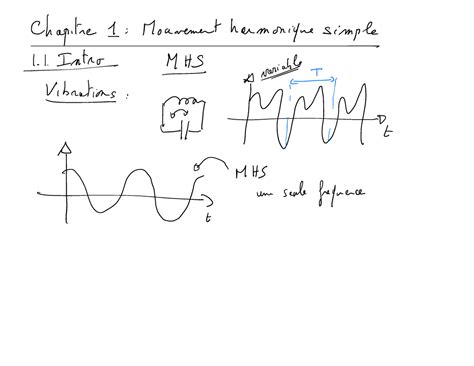 Chapitre 1 : Mouvement harmonique simple
1.1. Intro MHS
variable
T
Vibrations :
t
MHS
une seule fréquence
t